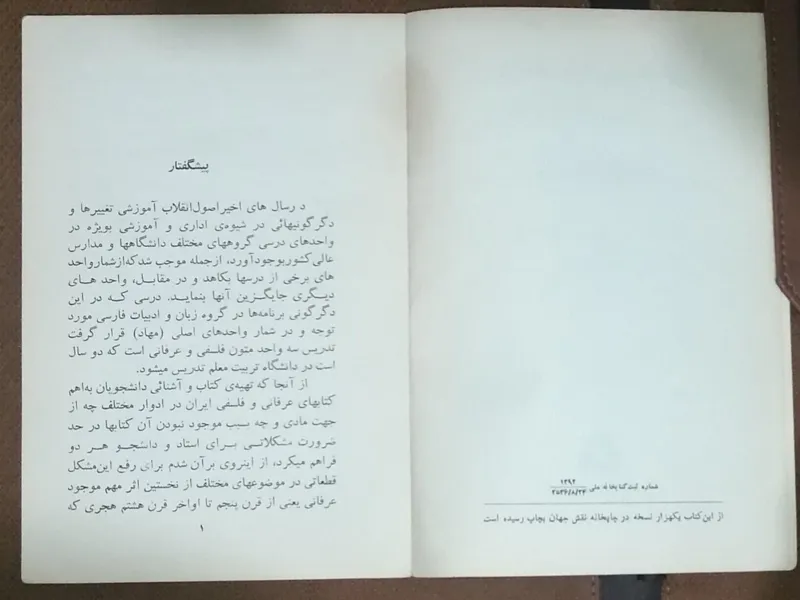 شماره ثبت کتابخانه ملی ۱۲۹۲
۲۵۳۶/۸/۲۴
از این کتاب یکهزار نسخه در چاپخانه نقش جهان بچاپ رسیده است
پیشگفتار
د رسال های اخیر اصول انقلاب آموزشی تغییرها و
دگرگونیهائی در شیوه‌ی اداری و آموزشی بویژه در
واحدهای درسی گروههای مختلف دانشگاهها و مدارس
عالی کشور بوجود آورد، از جمله موجب شد که از شمار واحد
های برخی از درسها بکاهد و در مقابل، واحد های
دیگری جایگزین آنها بنماید. درسی که در این
دگرگونی برنامه‌ها در گروه زبان و ادبیات فارسی مورد
توجه و در شمار واحدهای اصلی (مهاد) قرار گرفت
تدریس سه واحد متون فلسفی و عرفانی است که دو سال
است در دانشگاه تربیت معلم تدریس میشود.
از آنجا که تهیه‌ی کتاب و آشنائی دانشجویان به‌اهم
کتابهای عرفانی و فلسفی ایران در ادوار مختلف چه از
جهت مادی و چه سبب موجود نبودن آن کتابها در حد
ضرورت مشکلاتی برای استاد و دانشجو هر دو
فراهم میکرد، از اینروی برآن شدم برای رفع این مشکل
قطعاتی در موضوعهای مختلف از نخستین اثر مهم موجود
عرفانی یعنی از قرن پنجم تا اواخر قرن هشتم هجری که
۱